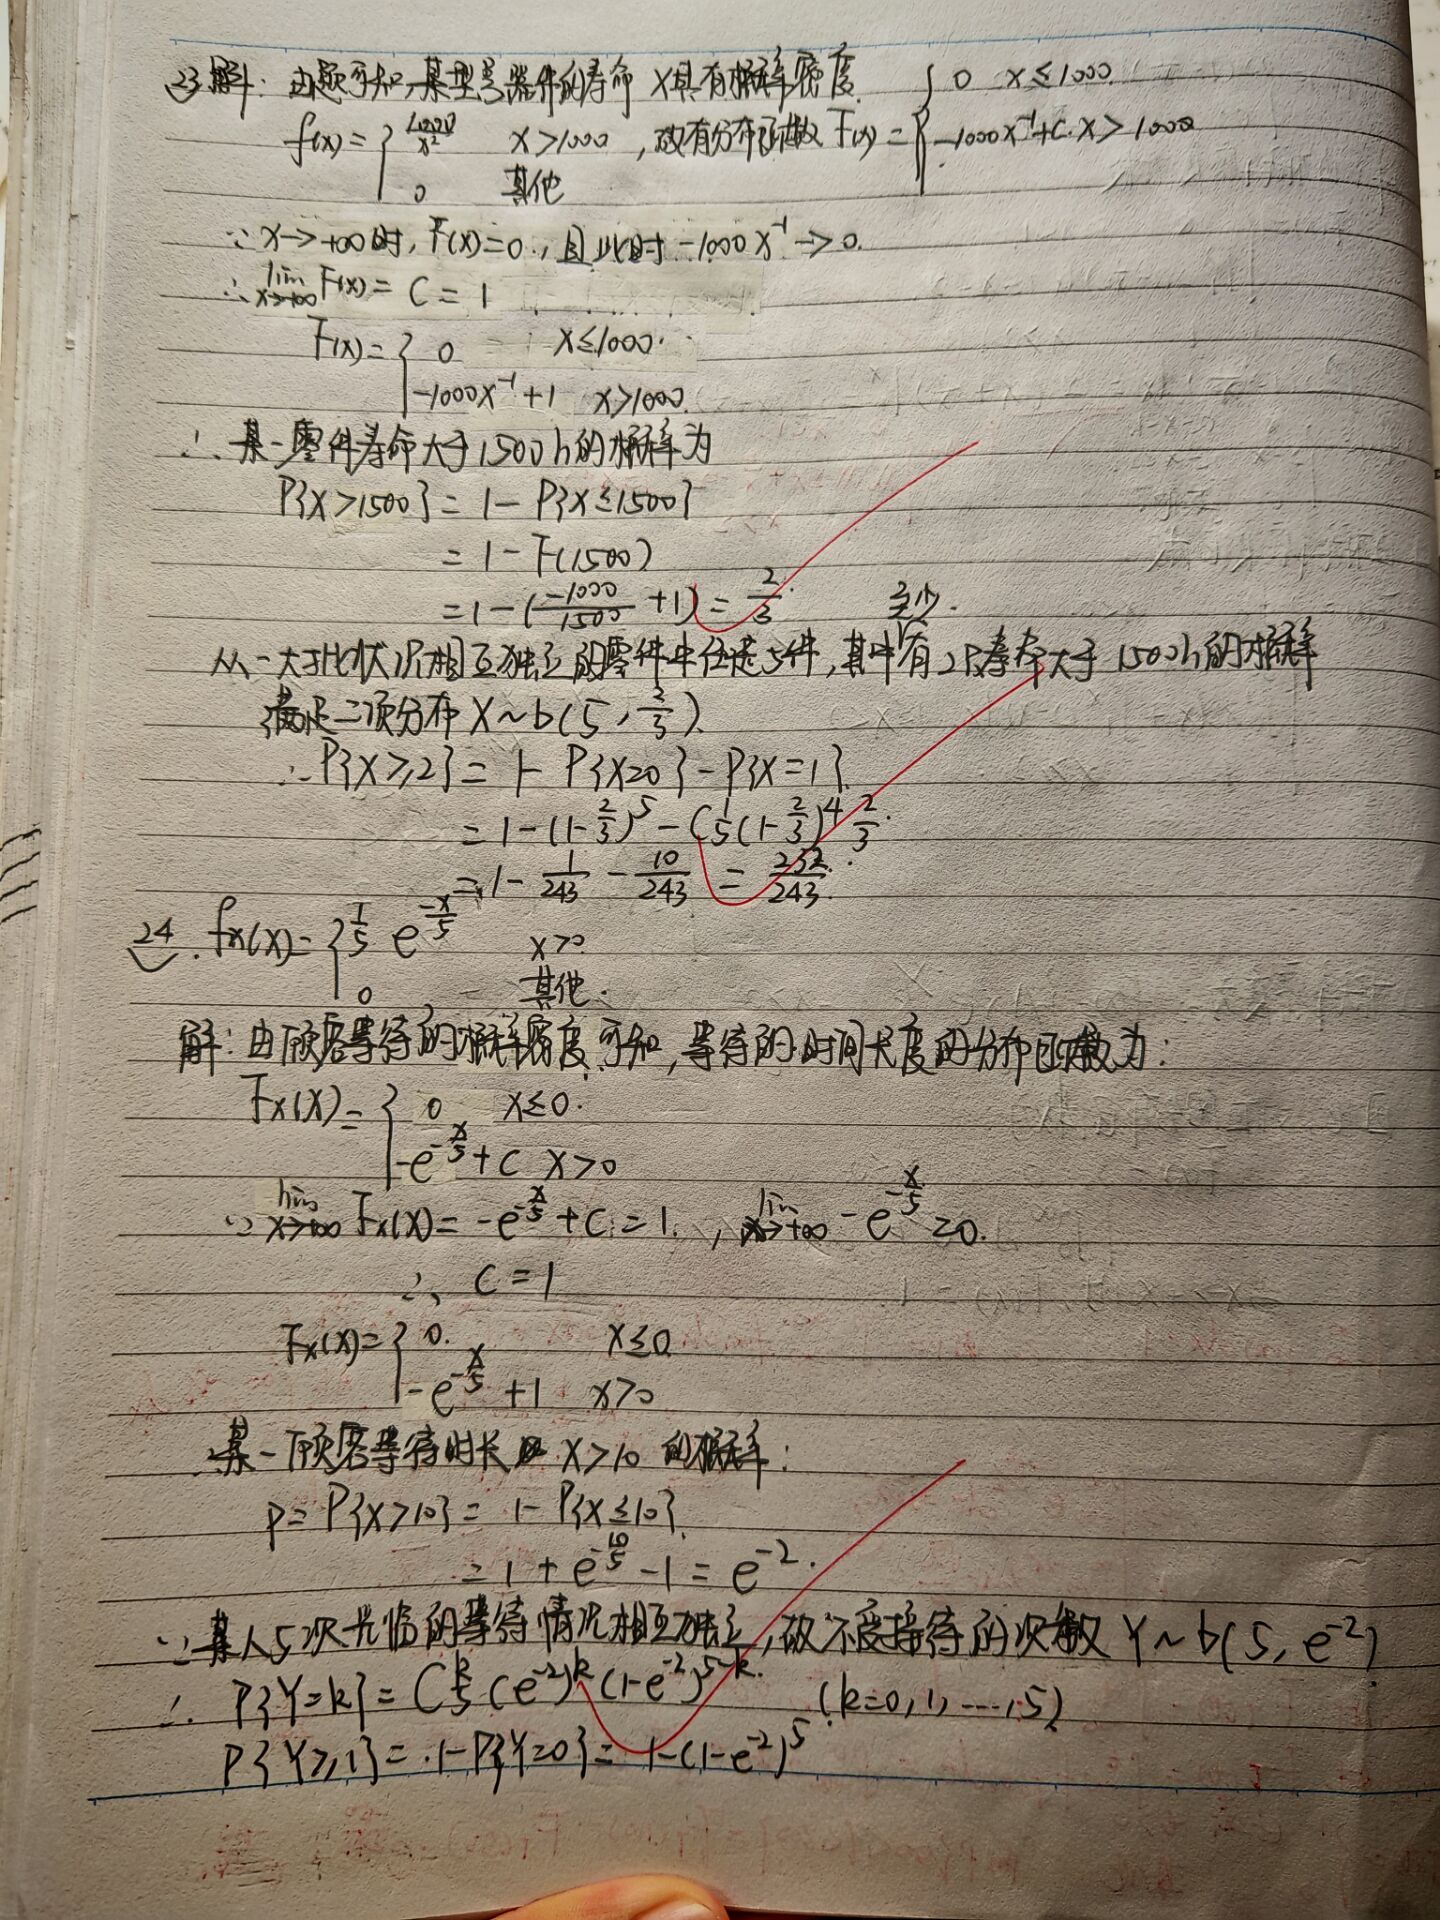 23 解：由题可知，某型号器件的寿命 X具有概率密度
f(x)={1000/x² x>1000，故有分布函数 F(x)={0 x≤1000
0 其他 -1000x⁻¹+C. x>1000
∵ x→+∞时, F(x)=0., 且此时 -1000x⁻¹→0.
∴ lim x→+∞ F(x)= C = 1
F(x)={0 x≤1000.
-1000x⁻¹+1 x>1000.
∴ 某一零件寿命大于1500h的概率为
P{X>1500}= 1-P{X≤1500}
= 1-F(1500)
=1-(-1000/1500 +1)= 2/3.
至少.
从一大批状况相互独立的零件中任选5件, 其中有2只寿命大于1500h的概率
满足二项分布 X~b(5, 2/3).
∴ P{X≥2}= 1- P{X=0}-P{X=1}.
=1-(1-2/3)⁵-C₅¹(1-2/3)⁴ 2/3.
=1- 1/243 - 10/243 = 232/243.
24. fx(x)={1/5 e^(-x/5) x>0
0 其他.
解: 由顾客等待的概率密度可知, 等待的时间长度的分布函数为:
Fx(x)={0 x≤0.
-e^(-x/5)+C x>0
∵ lim x→+∞ Fx(x)= -e^(-x/5)+C=1., lim x→+∞ -e^(-x/5)=0.
∴ C=1
Fx(x)={0. x≤0
-e^(-x/5)+1 x>0
某一顾客等待时长 x>10 的概率:
p= P{X>10}= 1- P{X≤10}.
=1+e^(-10/5)-1=e⁻².
∵ 某人5次光临的等待情况相互独立, 故不受接待的次数 Y~b(5, e⁻²)
∴ P{Y=k}= C₅ᵏ(e⁻²)ᵏ(1-e⁻²)⁵⁻ᵏ. (k=0,1,...,5)
P{Y≥1}=.1-P{Y=0}= 1-(1-e⁻²)⁵